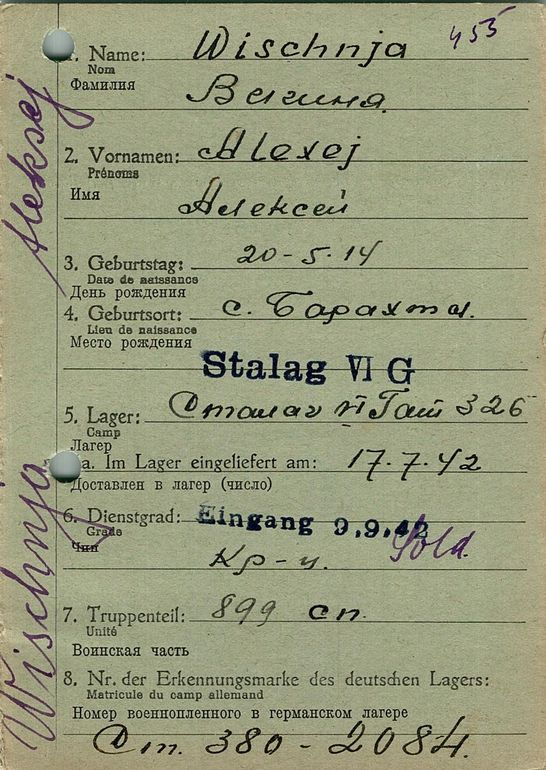 455
1. Name: Wischnja
Nom
Фамилия
Вигиня
2. Vornamen: Alexej
Prénoms
Имя
Алексей
3. Geburtstag: 20-5.14
Date de naissance
День рождения
4. Geburtsort: с. Барахты.
Lieu de naissance
Место рождения
Stalag VI G
5. Lager: Сталаг 326
Camp
Лагер
a. Im Lager eingeliefert am: 17.7.42
Доставлен в лагер (число)
6. Dienstgrad: Eingang 9.9.42
Grade
Sold.
Чин
Кр-ц.
7. Truppenteil: 899 сп.
Unité
Воинская часть
8. Nr. der Erkennungsmarke des deutschen Lagers:
Matricule du camp allemand
Номер военнопленного в германском лагере
Ст. 380-2084.
Wischnja Aleksej